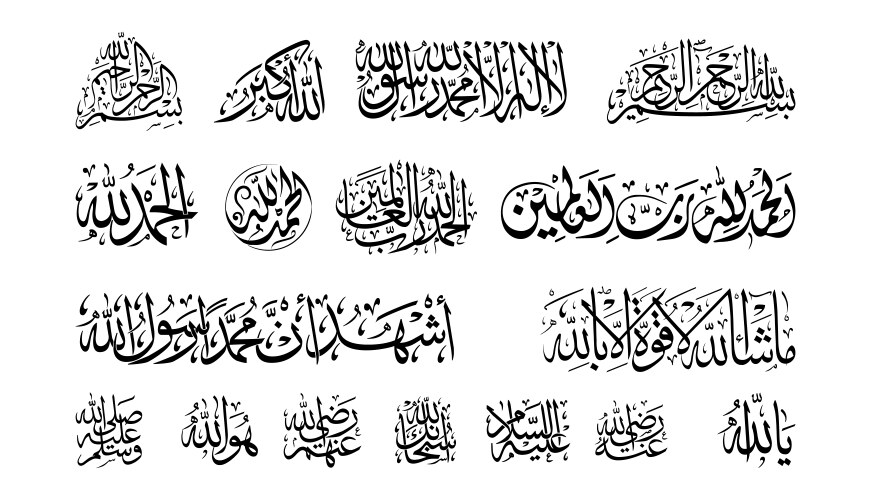 بسم الله الرحمن الرحيم
لا إله إلا الله محمد رسول الله
الله أكبر
بسم الله الرحمن الرحيم
الحمد لله رب العالمين
الحمد لله رب العالمين
الحمد لله
الحمد لله
ما شاء الله لا قوة إلا بالله
أشهد أن محمدا رسول الله
يا الله
رضي الله عنه
عليه السلام
سبحانك الله
رضي الله عنهم
هو الله
صلى الله عليه وسلم